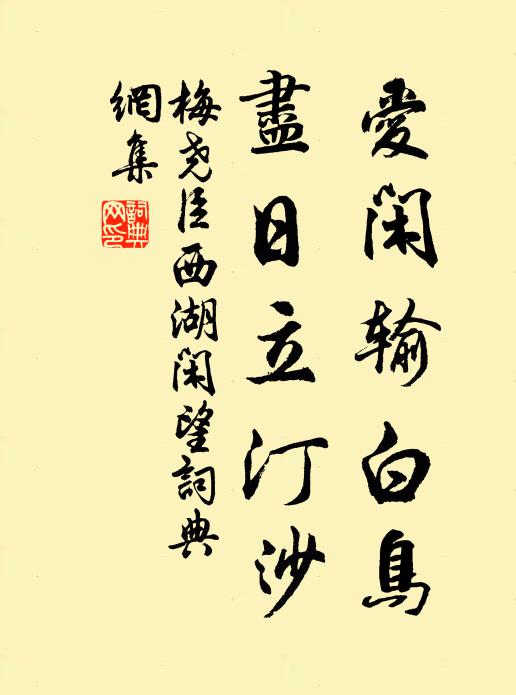 愛閑输白鳥
盡日立汀沙
梅尧臣西湖閑望詞典
網集
詞典
网印